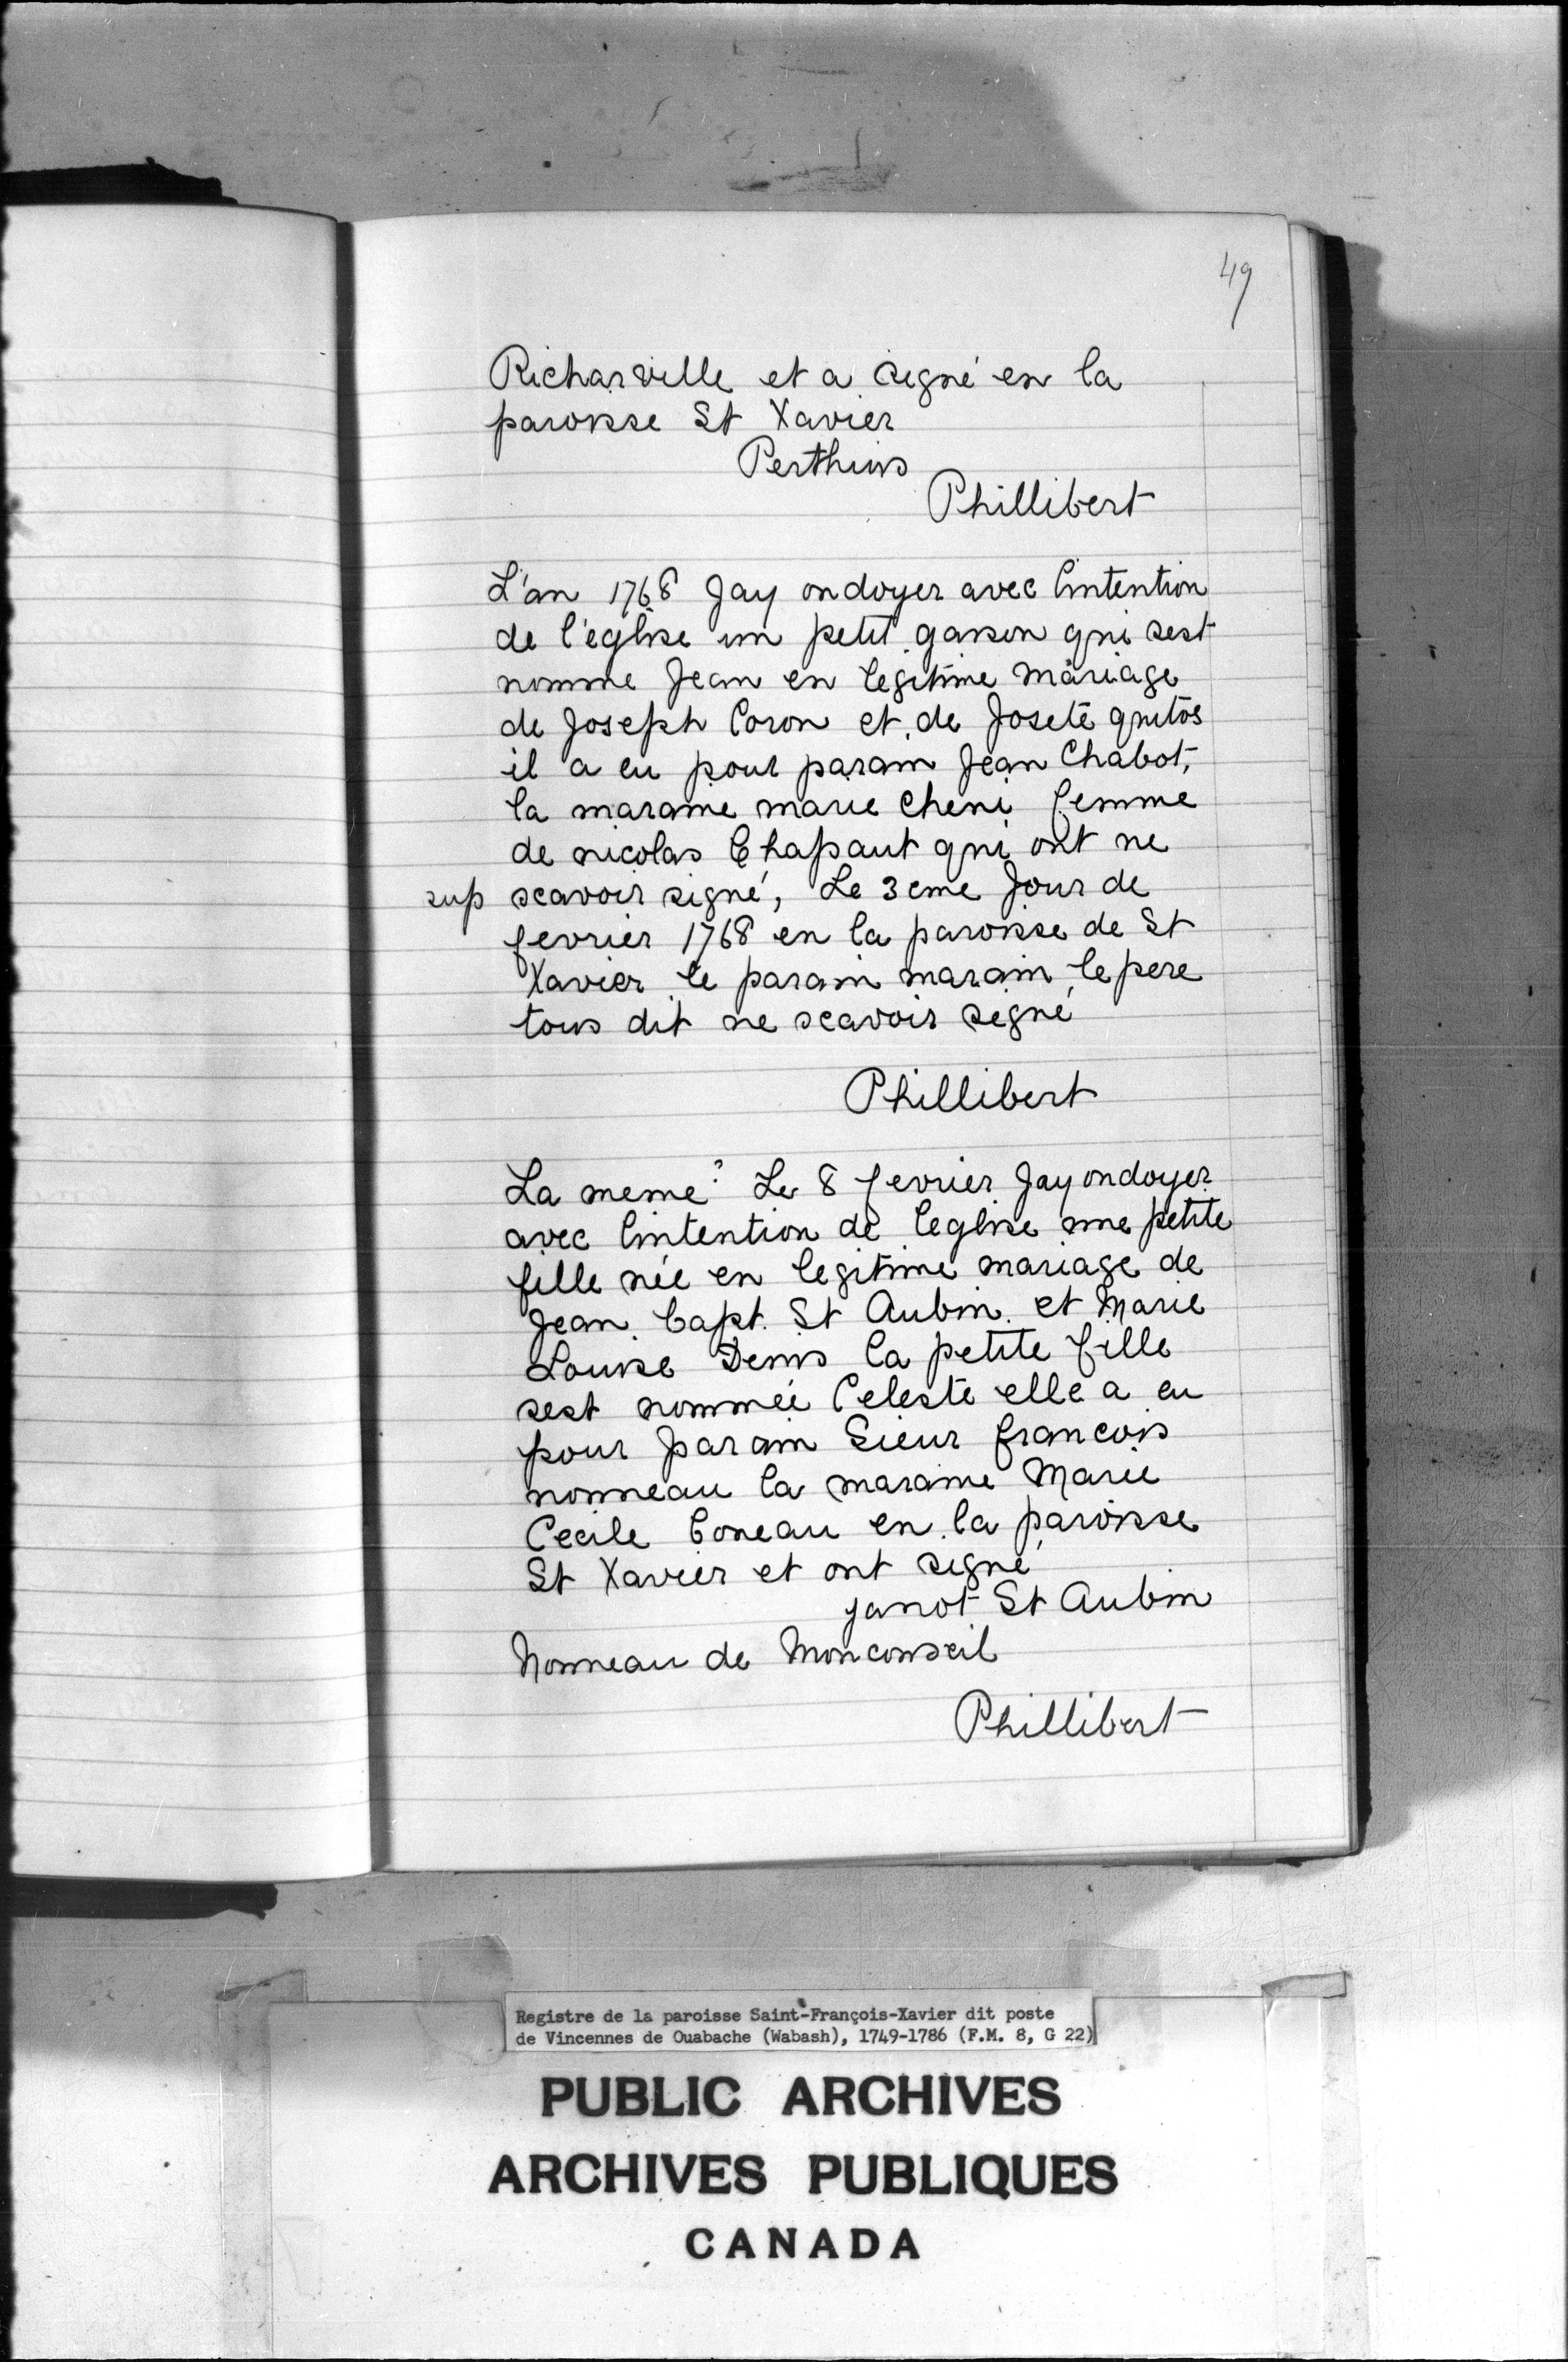 49
Richarville et a signé en la
paroisse St Xavier
Perthuis
Phillibert
L'an 1768 Jay ondoyer avec lintention
de l'eglise un petit garson qui sest
nomme Jean en legitime mariage
de Joseph Coron et de Josete quitos
il a eu pour parain Jean Chabot,
la maraine marie Cheni femme
de nicolas Chapaut qui ont ne
sup scavoir signé, Le 3eme Jour de
fevrier 1768 en la paroisse de St
Xavier le parain marain le pere
tous dit ne scavoir signé
Phillibert
La meme? Le 8 fevrier Jay ondoyer
avec lintention de leglise une petite
fille née en legitime mariage de
Jean bapt. St Aubin et Marie
Louise Denis la petite fille
sest nommée Celeste elle a eu
pour parain Sieur francois
nonneau la maraine Marie
Cecile Boneau en la paroisse
St Xavier et ont signé
janot St Aubin
Nonneau de Monconseil
Phillibert
Registre de la paroisse Saint-François-Xavier dit poste
de Vincennes de Ouabache (Wabash), 1749-1786 (F.M. 8, G 22)
PUBLIC ARCHIVES
ARCHIVES PUBLIQUES
CANADA